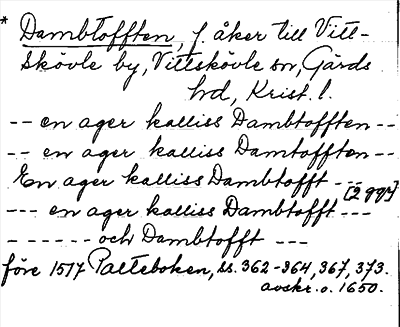 * Dambtofften, f. åker till Vitt-
skövle by, Vittskövle sn, Gärds
hd, Krist. l.
-- en ager kalliss Dambtofften --
-- en ager kalliss Damtofften --
En ager kalliss Dambtofft --- [2 ggr]
--- en ager kalliss Dambtofft ---
------ och Dambtofft ---
före 1517 Palteboken, ss. 362-364, 367, 373.
avskr. o. 1650.